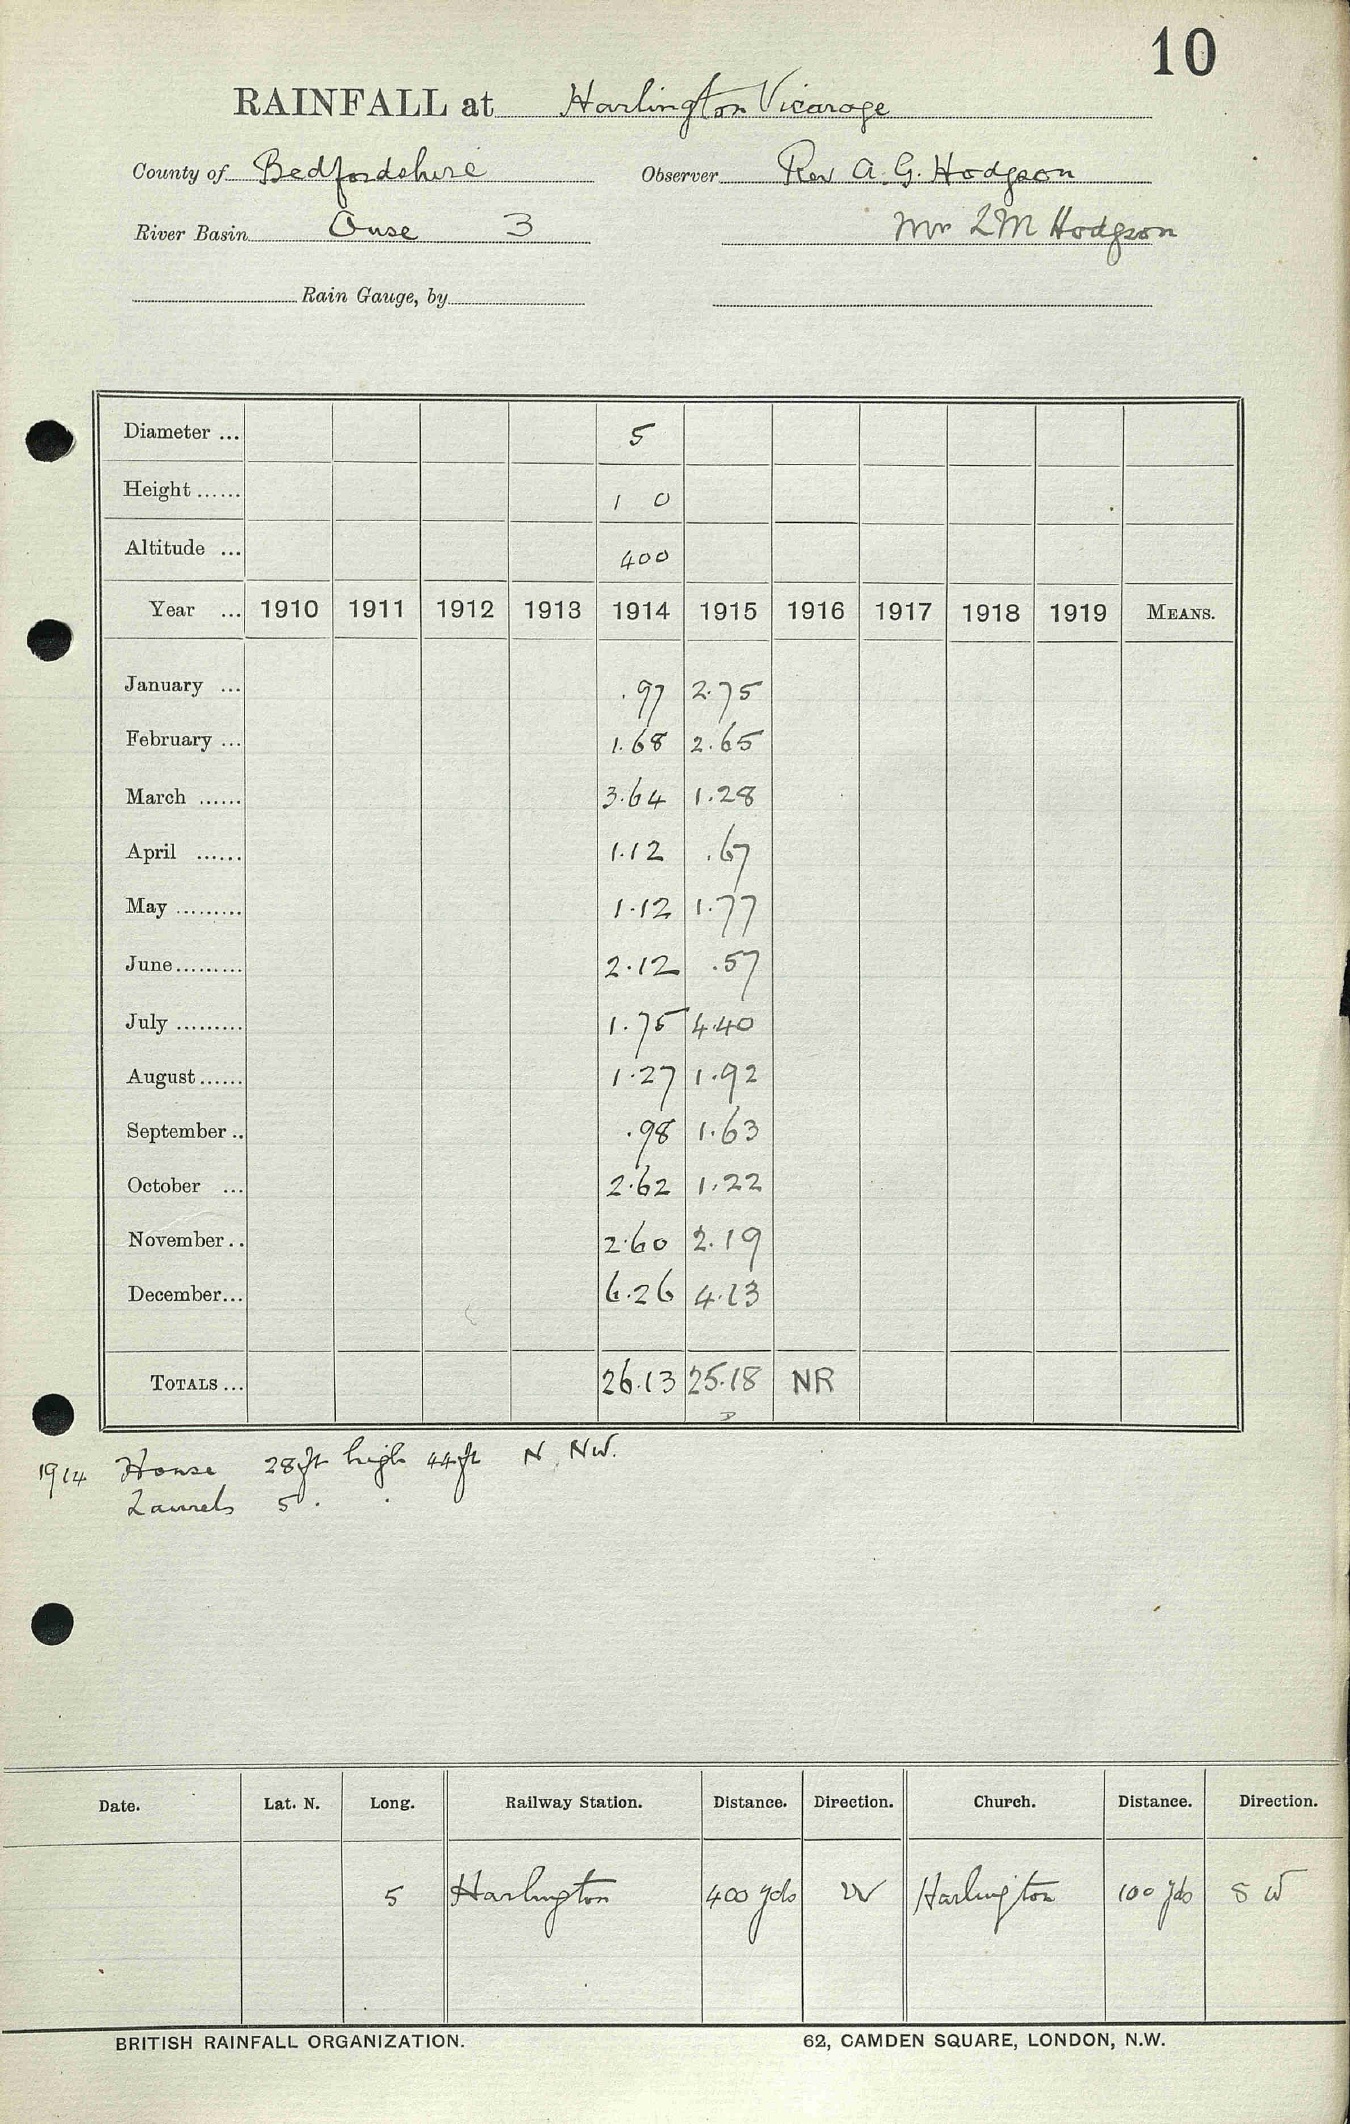 10
RAINFALL at Harlington Vicarage
County of Bedfordshire Observer Rev A. G. Hodgson
River Basin Ouse 3 Mr L M Hodgson
Rain Gauge, by
Diameter ... 5
Height ...... 1 0
Altitude ... 400
Year ... 1910 1911 1912 1913 1914 1915 1916 1917 1918 1919 MEANS.
January ... .97 2.75
February ... 1.68 2.65
March ...... 3.64 1.28
April ...... 1.12 .67
May ......... 1.12 1.77
June ......... 2.12 .57
July ......... 1.75 4.40
August ...... 1.27 1.92
September .. .98 1.63
October ... 2.62 1.22
November .. 2.60 2.19
December... 6.26 4.13
TOTALS ... 26.13 25.18 NR
D
1914 House 28ft high 44ft N, NW.
Laurels 5 . .
Date. Lat. N. Long. Railway Station. Distance. Direction. Church. Distance. Direction.
5 Harlington 400 yds W Harlington 100 yds S W
BRITISH RAINFALL ORGANIZATION. 62, CAMDEN SQUARE, LONDON, N.W.